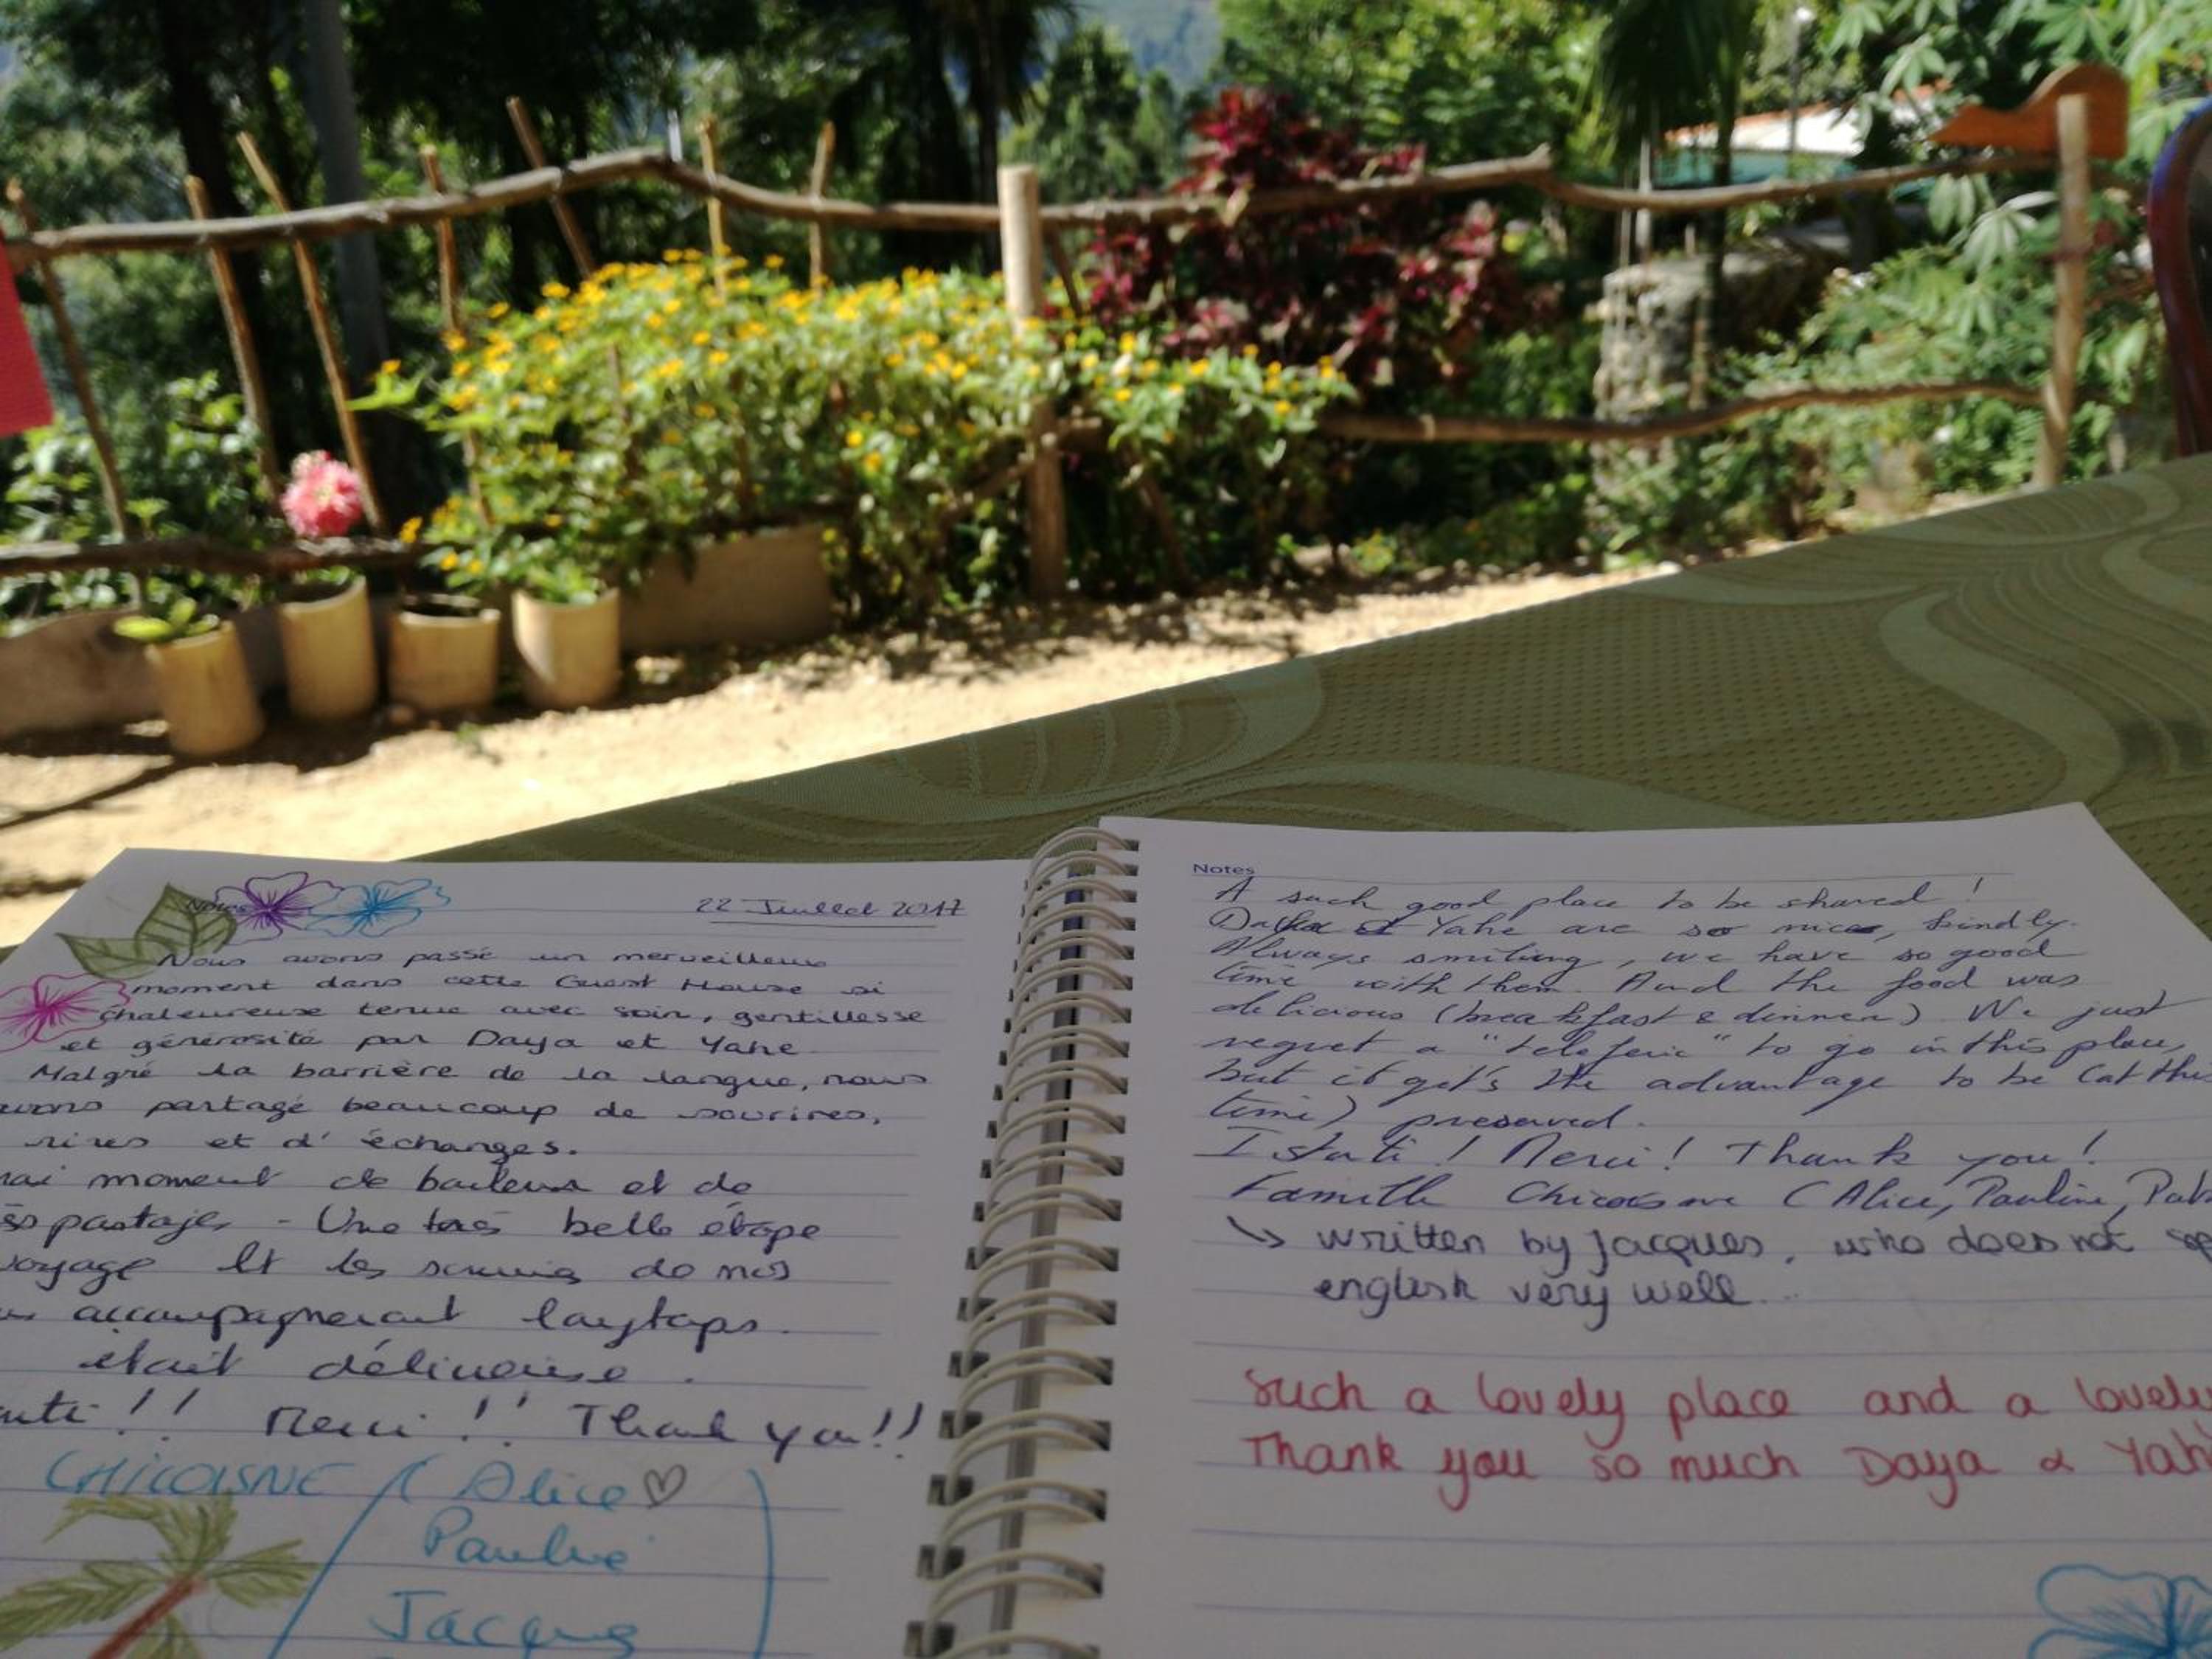 Notes
22 Juillet 2017
Nous avons passé un merveilleux
moment dans cette Guest House si
chaleureuse tenue avec soin, gentillesse
et générosité par Daya et Yahe.
Malgré la barrière de la langue, nous
avons partagé beaucoup de sourires,
rires et d'échanges.
moment de et de
partages - Une très belle étape
voyage Et les sourires de nos
accompagneront longtemps.
était délicieuse.
!! Merci !! Thank you!!
CHICOISNE (Alice ♡
Pauline
Jacques
Notes
A such good place to be shared!
et Yahe are so nice, kindly.
Always smiling, we have so good
time with them. And the food was
delicious (breakfast & dinner) We just
regret a "teleferic" to go in this place,
but it get's the advantage to be (at this
time) preserved.
Istuti! Merci! Thank you!
Famille Chicoisne (Alice, Pauline,
↳ written by Jacques, who does not
english very well...
Such a lovely place and a lovely
Thank you so much Daya &